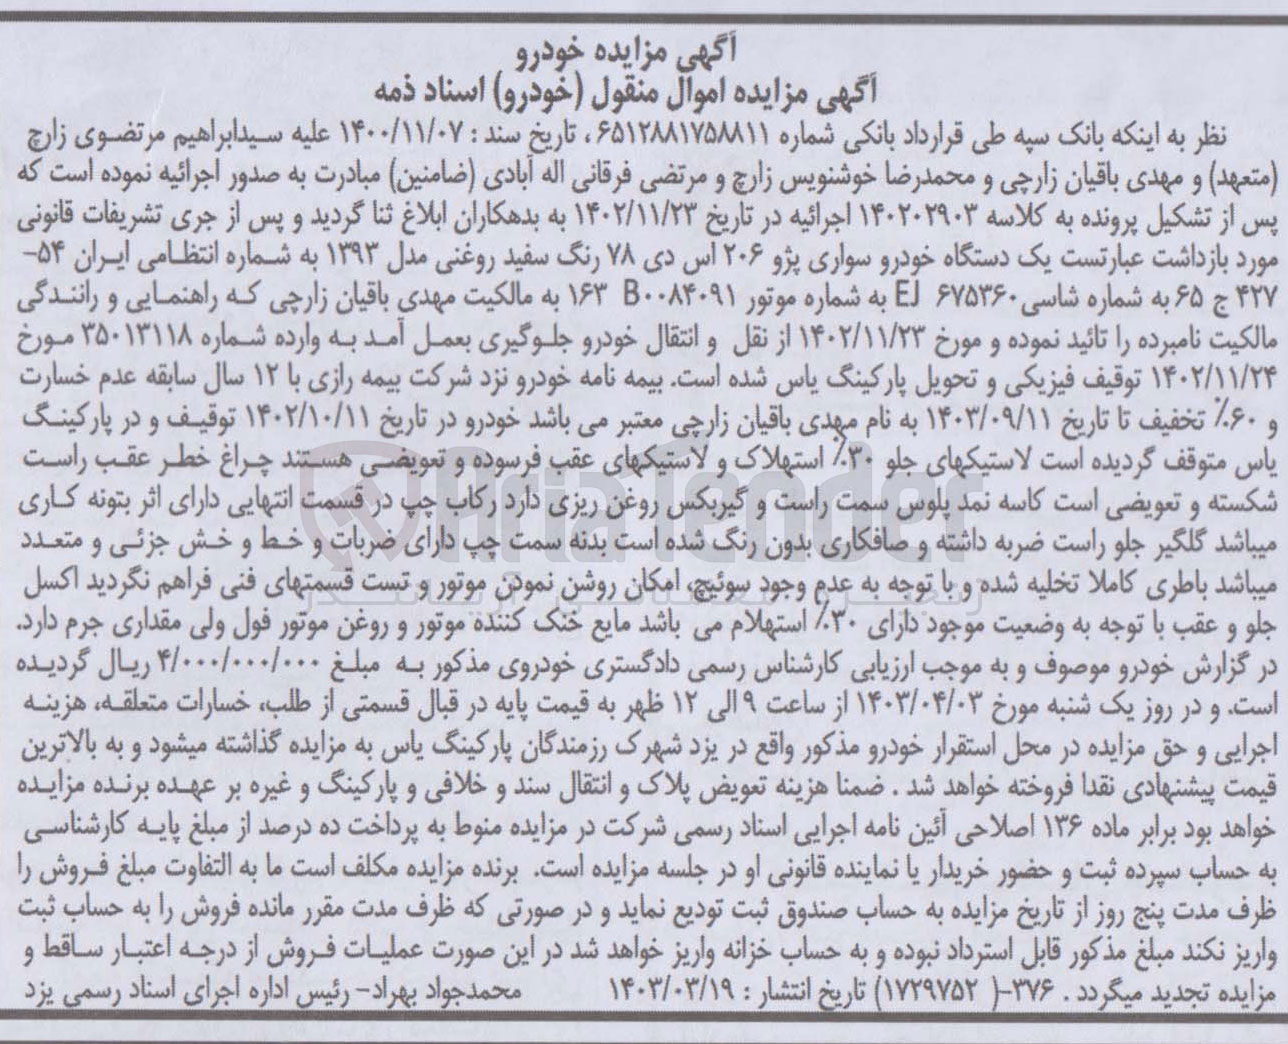 آگهی مزایده خودرو
آگهی مزایده اموال منقول (خودرو) اسناد ذمه
نظر به اینکه بانک سپه طی قرارداد بانکی شماره ۶۵۱۲۸۸۱۷۵۸۸۱۱ ، تاریخ سند : ۱۴۰۰/۱۱/۰۷ علیه سیدابراهیم مرتضوی زارچ
(متعهد) و مهدی باقیان زارچی و محمدرضا خوشنویس زارچ و مرتضی فرقانی اله آبادی (ضامنین) مبادرت به صدور اجرائیه نموده است که
پس از تشکیل پرونده به کلاسه ۱۴۰۲۰۲۹۰۳ اجرائیه در تاریخ ۱۴۰۲/۱۱/۲۳ به بدهکاران ابلاغ ثنا گردید و پس از جری تشریفات قانونی
مورد بازداشت عبارتست یک دستگاه خودرو سواری پژو ۲۰۶ اس دی ۷۸ رنگ سفید روغنی مدل ۱۳۹۳ به شماره انتظامی ایران ۵۴-
۴۲۷ ج ۶۵ به شماره شاسی ۶۷۵۳۶۰ EJ به شماره موتور ۱۶۳ B۰۰۸۴۰۹۱ به مالکیت مهدی باقیان زارچی که راهنمایی و رانندگی
مالکیت نامبرده را تائید نموده و مورخ ۱۴۰۲/۱۱/۲۳ از نقل و انتقال خودرو جلوگیری بعمل آمد به وارده شماره ۳۵۰۱۳۱۱۸ مورخ
۱۴۰۲/۱۱/۲۴ توقیف فیزیکی و تحویل پارکینگ یاس شده است. بیمه نامه خودرو نزد شرکت بیمه رازی با ۱۲ سال سابقه عدم خسارت
و ۶۰٪ تخفیف تا تاریخ ۱۴۰۳/۰۹/۱۱ به نام مهدی باقیان زارچی معتبر می باشد خودرو در تاریخ ۱۴۰۲/۱۰/۱۱ توقیف و در پارکینگ
یاس متوقف گردیده است لاستیکهای جلو ۳۰٪ استهلاک و لاستیکهای عقب فرسوده و تعویضی هستند چراغ خطر عقب راست
شکسته و تعویضی است کاسه نمد پلوس سمت راست و گیربکس روغن ریزی دارد رکاب چپ در قسمت انتهایی دارای اثر بتونه کاری
میباشد گلگیر جلو راست ضربه داشته و صافکاری بدون رنگ شده است بدنه سمت چپ دارای ضربات و خط و خش جزئی و متعدد
میباشد باطری کاملا تخلیه شده و با توجه به عدم وجود سوئیچ، امکان روشن نمودن موتور و تست قسمتهای فنی فراهم نگردید اکسل
جلو و عقب با توجه به وضعیت موجود دارای ۳۰٪ استهلام می باشد مایع خنک کننده موتور و روغن موتور فول ولی مقداری جرم دارد.
در گزارش خودرو موصوف و به موجب ارزیابی کارشناس رسمی دادگستری خودروی مذکور به مبلغ ۴/۰۰۰/۰۰۰/۰۰۰ ریال گردیده
است. و در روز یک شنبه مورخ ۱۴۰۳/۰۴/۰۳ از ساعت ۹ الی ۱۲ ظهر به قیمت پایه در قبال قسمتی از طلب، خسارات متعلقه، هزینه
اجرایی و حق مزایده در محل استقرار خودرو مذکور واقع در یزد شهرک رزمندگان پارکینگ یاس به مزایده گذاشته میشود و به بالاترین
قیمت پیشنهادی نقدا فروخته خواهد شد . ضمنا هزینه تعویض پلاک و انتقال سند و خلافی و پارکینگ و غیره بر عهده برنده مزایده
خواهد بود برابر ماده ۱۳۶ اصلاحی آئین نامه اجرایی اسناد رسمی شرکت در مزایده منوط به پرداخت ده درصد از مبلغ پایه کارشناسی
به حساب سپرده ثبت و حضور خریدار یا نماینده قانونی او در جلسه مزایده است. برنده مزایده مکلف است ما به التفاوت مبلغ فروش را
ظرف مدت پنج روز از تاریخ مزایده به حساب صندوق ثبت تودیع نماید و در صورتی که ظرف مدت مقرر مانده فروش را به حساب ثبت
واریز نکند مبلغ مذکور قابل استرداد نبوده و به حساب خزانه واریز خواهد شد در این صورت عملیات فروش از درجه اعتبار ساقط و
مزایده تجدید میگردد . ۳۷۶-( ۱۷۲۹۷۵۲) تاریخ انتشار : ۱۴۰۳/۰۳/۱۹ محمدجواد بهراد- رئیس اداره اجرای اسناد رسمی یزد
AriaTender